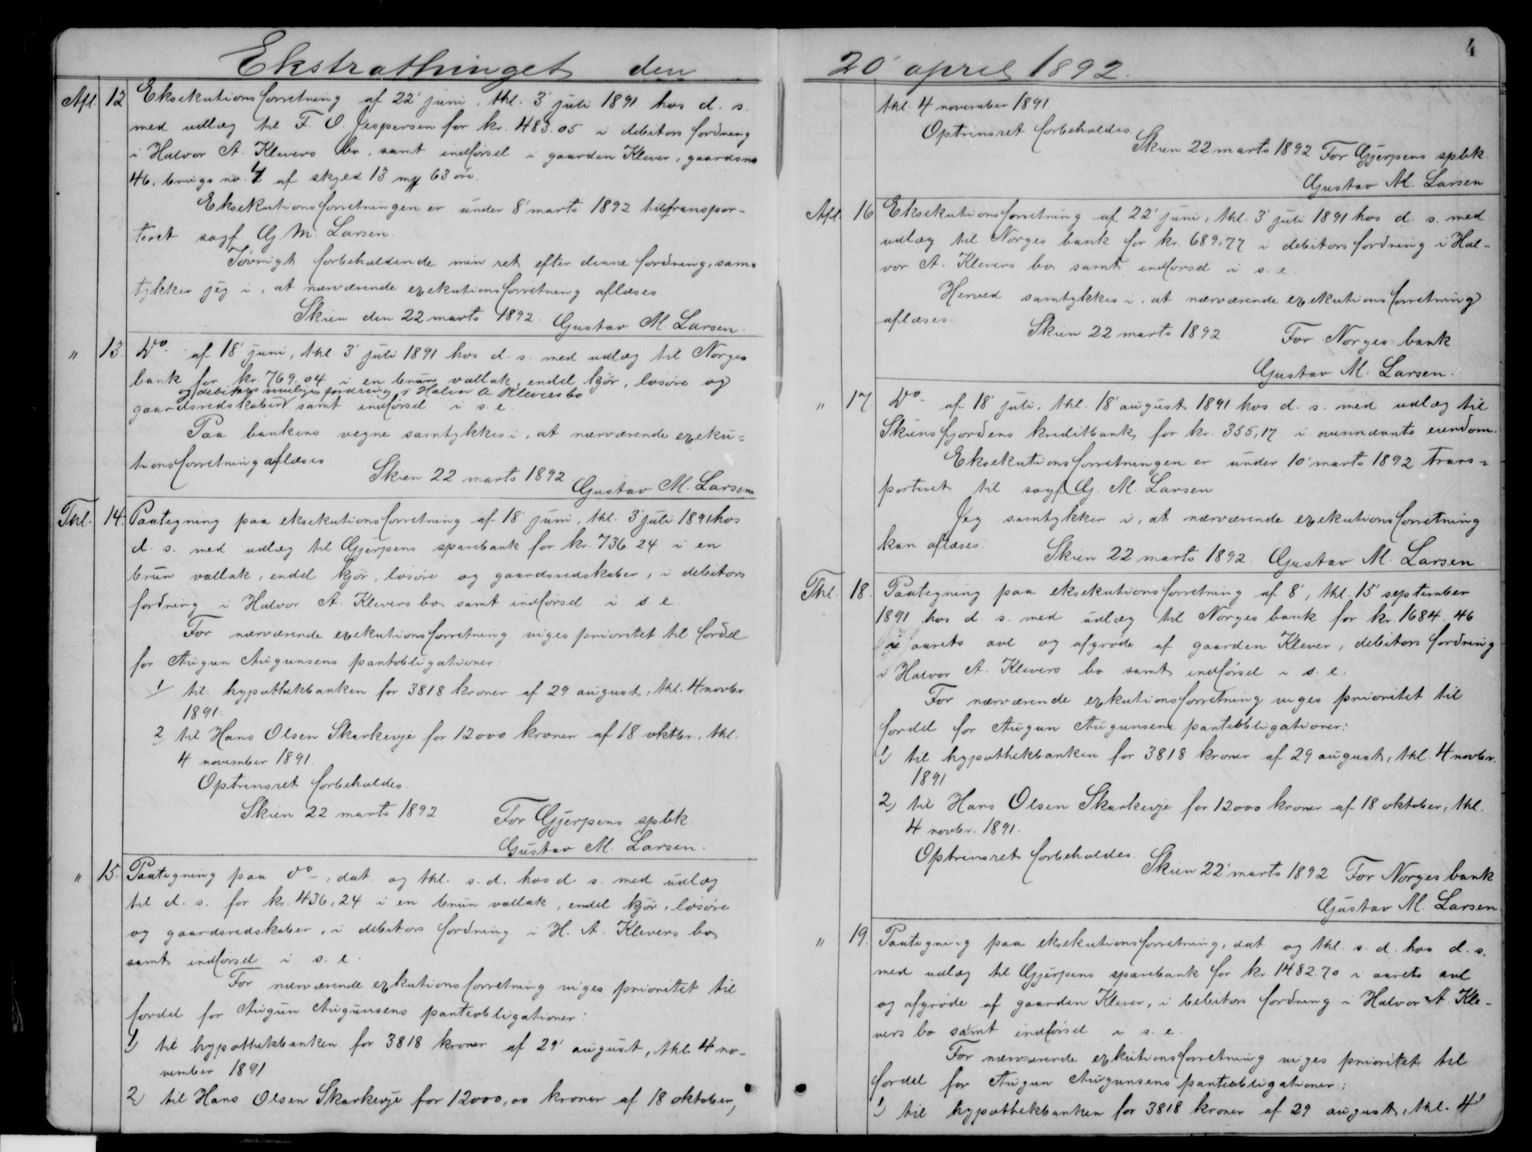 Ekstrathinget den
Afl. 12 Eksekutionsforretning af 22' juni, thl. 3' juli 1891 hos d. s.
med udlæg til F. O. Jespersen for kr. 483.05 i debitors fordring
i Halvor A. Klevers bo, samt indførsel i gaarden Klever, gaards no
46, brugs no. 4 af skyld 13 my 63 øre.
Eksekutionsforretningen er under 8' marts 1892 tiltranspor-
teret sagf. G. M. Larsen.
Iøvrigt forbeholdende min ret efter denne fordring, sam-
tykker jeg i, at nærværende exekutionsforretning aflæses
Skien den 22 marts 1892. Gustav M. Larsen.
" 13. Do. af 18' juni, thl 3' juli 1891 hos d. s. med udlæg til Norges
bank for kr. 769.04 i en brun vallak, endel kjør, løsøre og
og debitors mulige fordring i Halvor A Klevers bo
gaardsredskaber samt indførsel i s. e
Paa bankens vegne samtykkes i, at nærværende exeku-
tionsforretning aflæses.
Skien 22 marts 1892 Gustav M. Larsen
Thl. 14. Paategning paa eksekutionsforretning af 18' juni, thl. 3' juli 1891 hos
d. s. med udlæg til Gjerpens sparebank for kr. 736.24 i en
brun vallak, endel kjør, løsøre og gaardsredskaber, i debitors
fordring i Halvor A. Klevers bo samt indførsel i s e
For nærværende exekutionsforretning viges prioritet til fordel
for Augun Augunsens pantobligationer:
1/ til hypothekbanken for 3818 kroner af 29 august, thl. 4 novbr.
1891.
2, til Hans Olsen Skarkevje for 12000 kroner af 18 oktbr., thl.
4 november 1891.
Optrinsret forbeholdes.
Skien 22 marts 1892 For Gjerpens spbk
Gustav M. Larsen.
" 15. Paategning paa do, dat. og thl. s. d. hos d. s. med udlæg
til d. s. for kr. 436,24 i en brun vallak, endel kjør, løsøre
og gaardsredskaber, i debitors fordring i H. A. Klevers bo
samt indførsel i s. e.
For nærværende exkutionsforretning viges prioritet til
fordel for Augun Augunsens pantobligationer:
1) til hypothekbanken for 3818 kroner af 29' august, thl 4 no-
vember 1891
2) til Hans Olsen Skarkevje for 12000,00 kroner af 18 oktober,
20' april 1892.
4
thl. 4 november 1891
Optrinsret forbeholdes
Skien 22 marts 1892 For Gjerpens spbk.
Gustav M. Larsen
Afl. 16 Eksekutionsforretning af 22' juni, thl. 3' juli 1891 hos d. s. med
udlæg til Norges bank for kr. 689,77 i debitors fordring i Hal-
vor A. Klevers bo samt indførsel i s. e.
Herved samtykkes i, at nærværende exekutionsforretning
aflæses.
Skien 22 marts 1892 For Norges bank
Gustav M. Larsen.
" 17 Do. af 18' juli, thl. 18' august 1891 hos d. s. med udlæg til
Skiensfjordens kreditbank for kr. 355,17 i ovennævnte eiendom.
Eksekutionsforretningen er under 10' marts 1892 trans-
porteret til sagf. G. M. Larsen
Jeg samtykker i, at nærværende exekutionsforretning
kan aflæses.
Skien 22 marts 1892. Gustav M. Larsen
Thl. 18. Paategning paa eksekutionsforretning af 8', thl. 15' september
1891 hos d. s. med udlæg til Norges bank for kr. 1684.46
i aarets avl og afgrøde af gaarden Klever, debitors fordring
i Halvor A. Klevers bo samt indførsel i s. e.
For nærværende exkutionsforretning viges prioritet til
fordel for Augun Augunsens pantobligationer:
1) til hypothekbanken for 3818 kroner af 29 august, thl. 4 novbr.
1891
2) til Hans Olsen Skarkevje for 12000 kroner af 18 oktober, thl.
4 novbr. 1891.
Optrinsret forbeholdes
Skien 22' marts 1892 For Norges bank
Gustav M. Larsen
" 19. Paategning paa eksekutionsforretning, dat og thl. s. d. hos d. s.
med udlæg til Gjerpens sparebank for kr 1482.70 i aarets avl
og afgrøde af gaarden Klever, i debitors fordring i Halvor A. Kle-
vers bo samt indførsel i s. e.
For nærværende exkutionsforretning viges prioritet til
fordel for Augun Augunsens pantobligationer:
1) til hypothekbanken for 3818 kroner af 29 august, thl. 4'